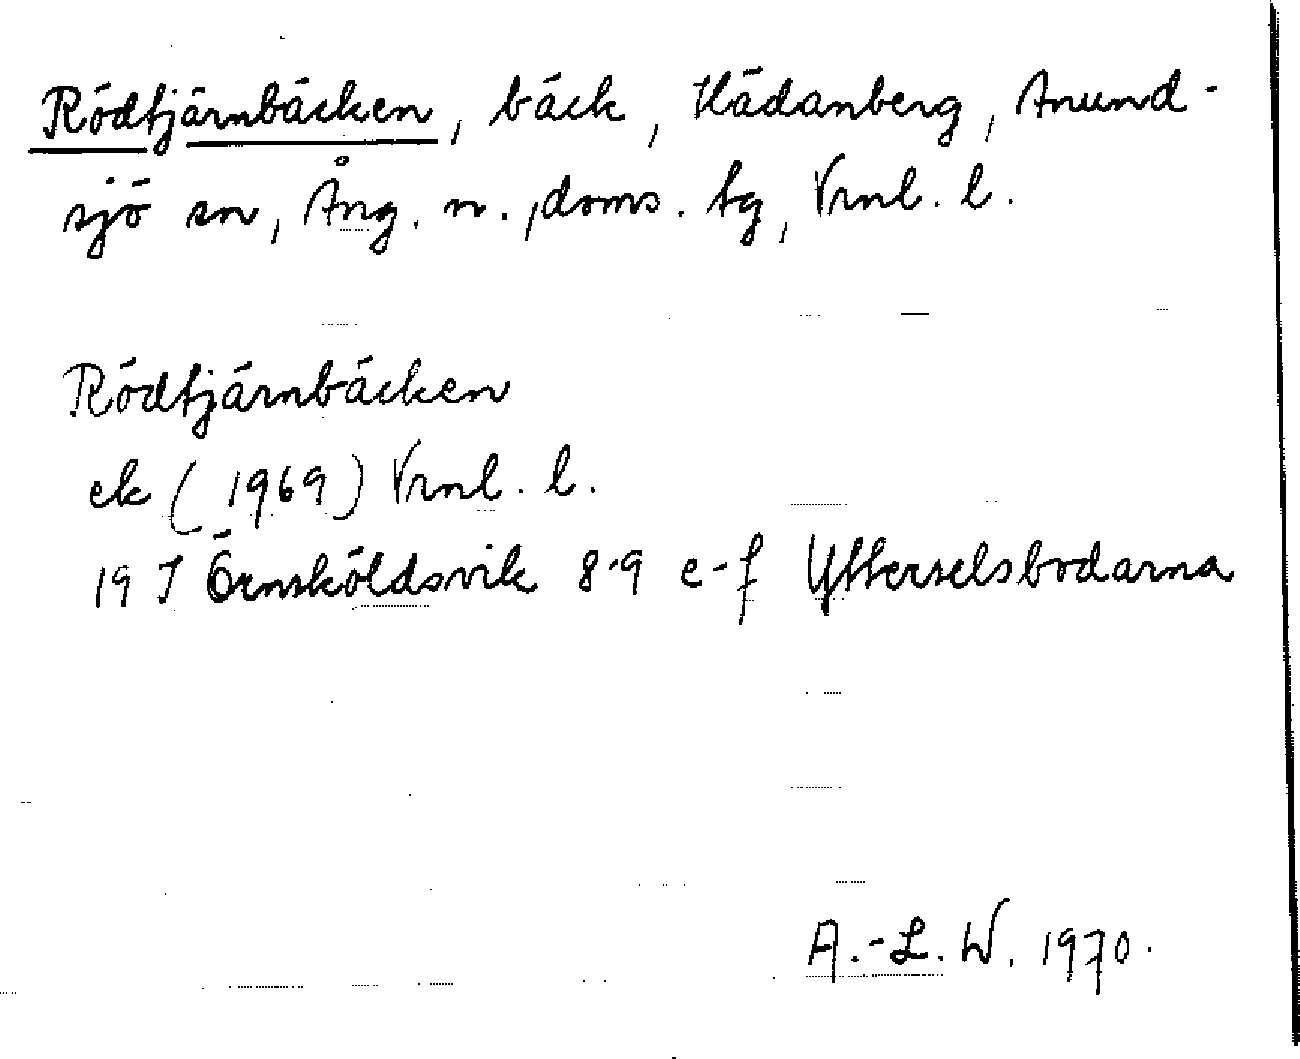 Rödtjärnbäcken, bäck, Hädanberg, Anund-
sjö sn, Ång. n., doms. tg, Vrnl. l.
Rödtjärnbäcken
ek (1969) Vrnl. l.
19 J Örnsköldsvik 8-9 e-f Ytterselsbodarna
A.-L. W. 1970.